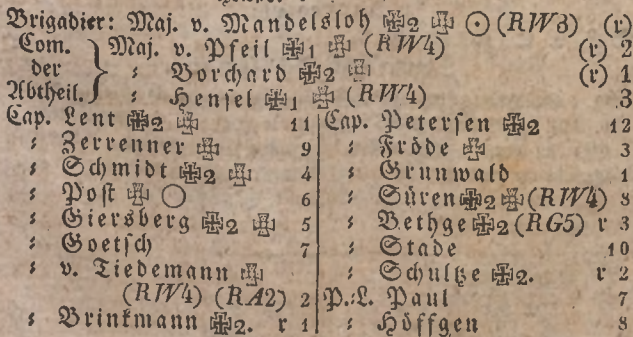 Brigadier: Maj. v. Mandelsloh ✠2 ✠ ⊙ (RW3) (r)
Com. der Abtheil. } Maj. v. Pfeil ✠1 ✠ (RW4) (r) 2
: Borchard ✠2 ✠ (r) 1
: Hensel ✠1 ✠ (RW4) 3
Cap. Lent ✠2 ✠ 11
: Zerrenner ✠ 9
: Schmidt ✠2 ✠ 4
: Post ✠ ○ 6
: Giersberg ✠2 ✠ 5
: Goetsch 7
: v. Tiedemann ✠
(RW4) (RA2) 2
: Brinkmann ✠2. r 1
Cap. Petersen ✠2 12
: Fröde ✠ 3
: Grunwald 1
: Süren ✠2 ✠ (RW4) 8
: Bethge ✠2 (RG5) r 3
: Stade 10
: Schultze ✠2. r 2
P.:L. Paul 7
: Höffgen 8